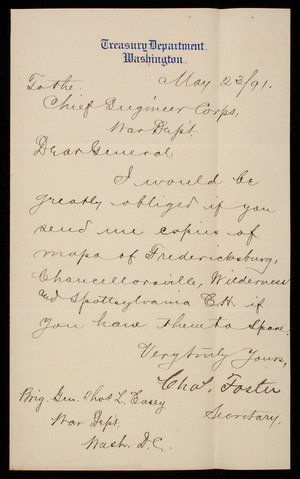 Treasury Department,
Washington.
May 23/91.
To the
Chief Engineer Corps,
War Dep't.
Dear General:
I would be
greatly obliged if you
send me copies of
maps of Fredericksburg,
Chancellorsville, Wilderness
and Spottsylvania C.H. if
you have them to spare.
Very truly Yours,
Chas. Foster
Secretary.
Brig. Gen. Thos L. Casey
War Dep't,
Wash. D.C.